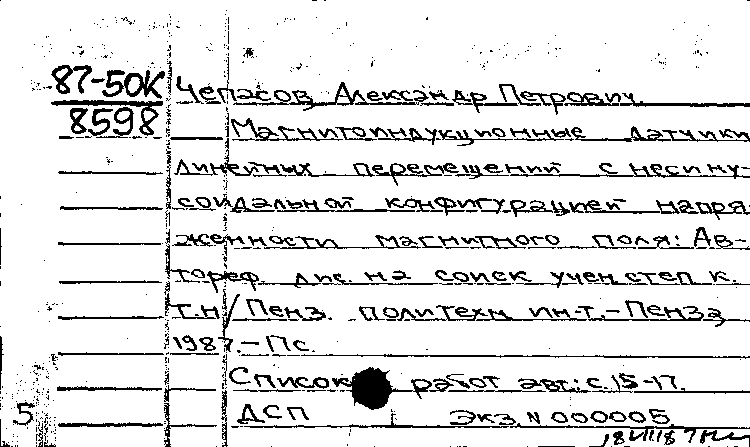 87-50К
8598
Чепасов, Александр Петрович.
Магнитоиндукционные датчики
линейных перемещений с несину-
соидальной конфигурацией напря-
женности магнитного поля: Ав-
тореф. дис. на соиск. учен. степ. к.
т.н/Пенз. политехн. ин-т.-Пенза,
1987.-17с.
Список работ авт.: с.15-17.
ДСП Экз. N 000005
5